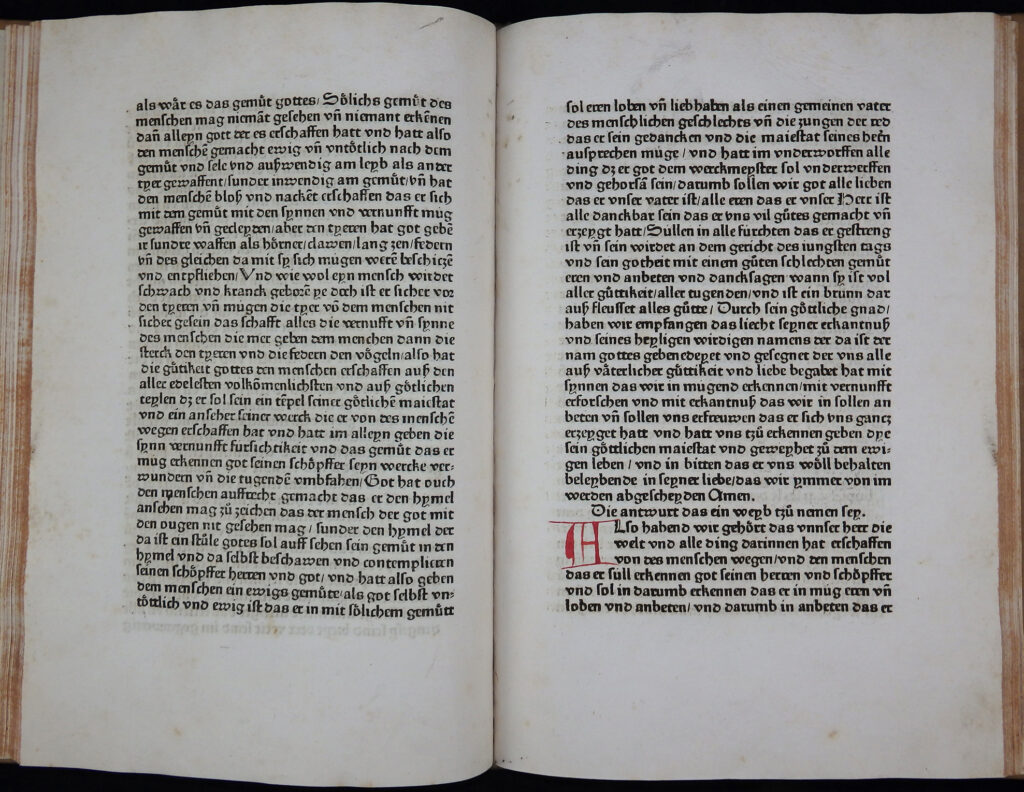 als wår es das gemu̇t gottes/ Sȯlichs gemu̇t des
menschen mag niemāt gesehen vn̄ niemant erkēnen
dan̄ alleyn gott der es erschaffen hatt vnd hatt also
den menschē gemacht ewig vn̄ vntȯtlich nach dem
gemu̇t vnd sele vnd außwendig am leyb als ander
tyer gewaffent/sunder inwendig am gemu̇t/vn̄ hat
den menschē bloß vnd nackēt erschaffen das er sich
mit dem gemu̇t mit den synnen vnd vernunfft mug
gewaffen vn̄ becleyden/aber den tyeren hat got gebē
ir sundre waffen als hȯrner/clawen/lang zen/federn
vn̄ des gleichen da mit sy sich mugen werē beschiczē
vnd entpfliehen/Vnd wie wol eyn mensch wirdet
schwach vnd kranck geborē ye doch ist er sicher vor
den tyeren vn̄ mugen die tyer vō dem menschen nit
sicher gesein das schafft alles die vernufft vn̄ synne
des menschen die mer geben dem menchen dann die
sterck den tyeren vnd die federn den vȯgeln/also hat
die gu̇tikeit gottes den menschen erschaffen auß den
aller edelesten volkōmenlichsten vnd auß gȯtlichen
teylen dz er sol sein ein tēpel seiner gȯtlichē maiestat
vnd ein anseher seiner werck die er von des menschē
wegen erschaffen hat vnd hatt im alleyn geben die
synn vernunfft fursichtikeit vnd das gemu̇t das er
mug erkennen got seinen schȯpffer seyn wercke ver-
wundern vn̄ die tugendē vmbfahen/God hat ouch
den menschen auffrecht gemacht das er den hymel
ansehen mag zů zeichen das der mensch der got mit
den ougen nit gesehen mag/ sunder den hymel der
da ist ein stu̇le gotes sol auff sehen sein gemu̇t in den
hymel vnd da selbst beschawen vnd contemplieren
seinen schȯpffer herren vnd got/ vnd hatt also geben
dem menschen ein ewigs gemu̇te/als got selbst vn-
tȯttlich vnd ewig ist das er in mit sȯlichem gemu̇tt
sol eren loben vn̄ liebhaben als einen gemeinen vater
des menschlichen geschlechts vn̄ die zungen der red
das er sein gedancken vnd die maiestat seines herrn
ausprechen mu̇ge / vnd hatt im vnderworffen alle
ding dz er got dem werckmeyster sol vnderwerffen
vnd gehorsā sein/darumb sollen wir got alle lieben
das er vnser vater ist/alle eren das er vnser Herr ist
alle danckbar sein das er vns vil gu̇tes gemacht vn̄
erzeygt hatt/Sullen in alle furchten das er gestreng
ist vn̄ sein wirdet an dem gericht des iungsten tags
vnd sein gotheit mit einem gu̇ten schlechten gemu̇t
eren vnd anbeten vnd dancksagen wann sy ist vol
aller gu̇ttikeit/aller tugenden/vnd ist ein brunn dar
auß fleusset alles gu̇tte/ Durch sein gȯttliche gnad/
haben wir empfangen das liecht seyner erkantnuß
vnd seines heyligen wirdigen namens der da ist der
nam gottes gebenedeyet vnd gesegnet der vns alle
auß våterlicher gu̇ttikeit vnd liebe begabet hat mit
synnen das wir in mugend erkennen/mit vernunfft
erforschen vnd mit erkantnuß das wir in sollen an
beten vn̄ sollen vns erfreuwen das er sich vns gantz
erzeyget hatt vnd hatt vns tzů erkennen geben dye
sein gȯttlichen maiestat vnd geweyhet zů dem ewi-
gen leben / vnd in bitten das er vns wȯll behalten
beleybende in seyner liebe/das wir ymmer von im
werden abgescheyden Amen.
Die antwurt das ein weyb tzů nemen sey.
Also habend wir gehȯrt das vnnser herr die
welt vnd alle ding darinnen hat erschaffen
von des menschen wegen/vnd den menschen
das er sull erkennen got seinen herren vnd schȯpffer
vnd sol in darumb erkennen das er in mug eren vn̄
loben vnd anbeten/ vnd darumb in anbeten das er